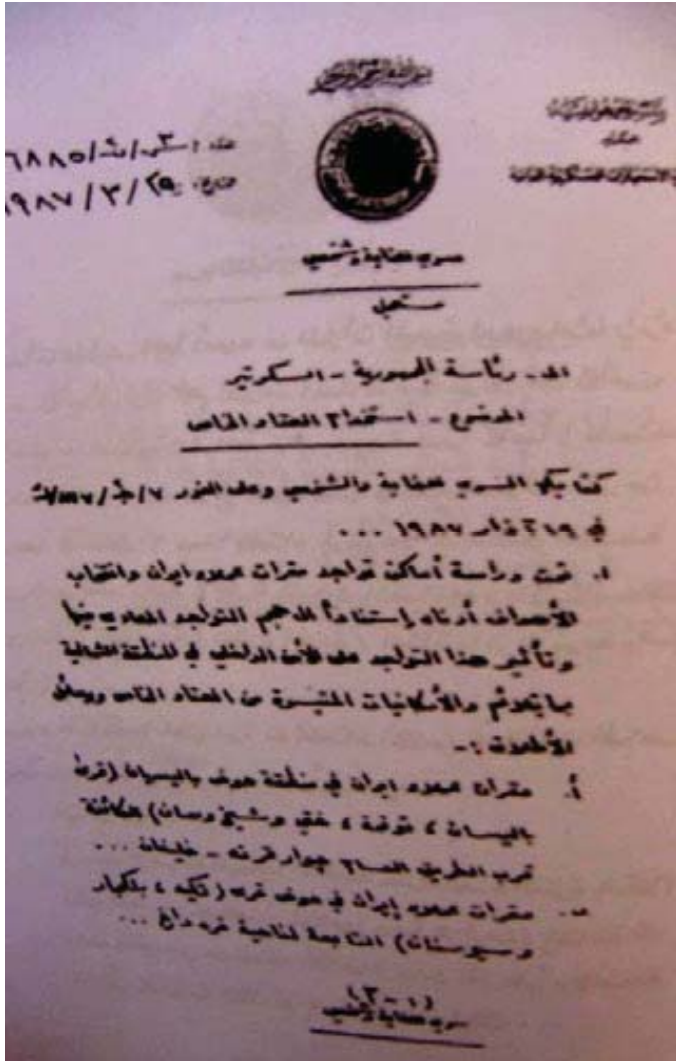 بسم الله الرحمن الرحيم
العدد / ش٣ / ٦٨٨٥
التاريخ ٢٥ / ٣ / ١٩٨٧
سري للغاية وشخصي
مستعجل
الى - رئاسة الجمهورية - السكرتير
الموضوع - استخدام العتاد الخاص
كتابكم السري للغاية والشخصي وعلى الفور ٧/ج٢/
في ١٩ آذار ١٩٨٧ ...
١. تمت دراسة أماكن تواجد مقرات عملاء ايران وانتخاب
الأهداف أدناه إستناداً الى حجم التواجد المعادي فيها
وتأثير هذا التواجد على الأمن الداخلي في المنطقة الشمالية
بما يتلائم والأمكانيات المتيسرة من العتاد الخاص ووسائل
الأطلاق :-
أ. مقرات عملاء ايران في منطقة حوض باليسان (قرى
باليسان ، توتمة ، ختي وشيخ وسان) الكائنة
قرب الطريق العام جوار قرنه - خليفان ...
ب. مقرات عملاء إيران في حوض قره (تكيه ، بلكجار
و سيوسنان) التابعة لناحية قره داغ ...
(١-٣)
سري للغاية وشخصي